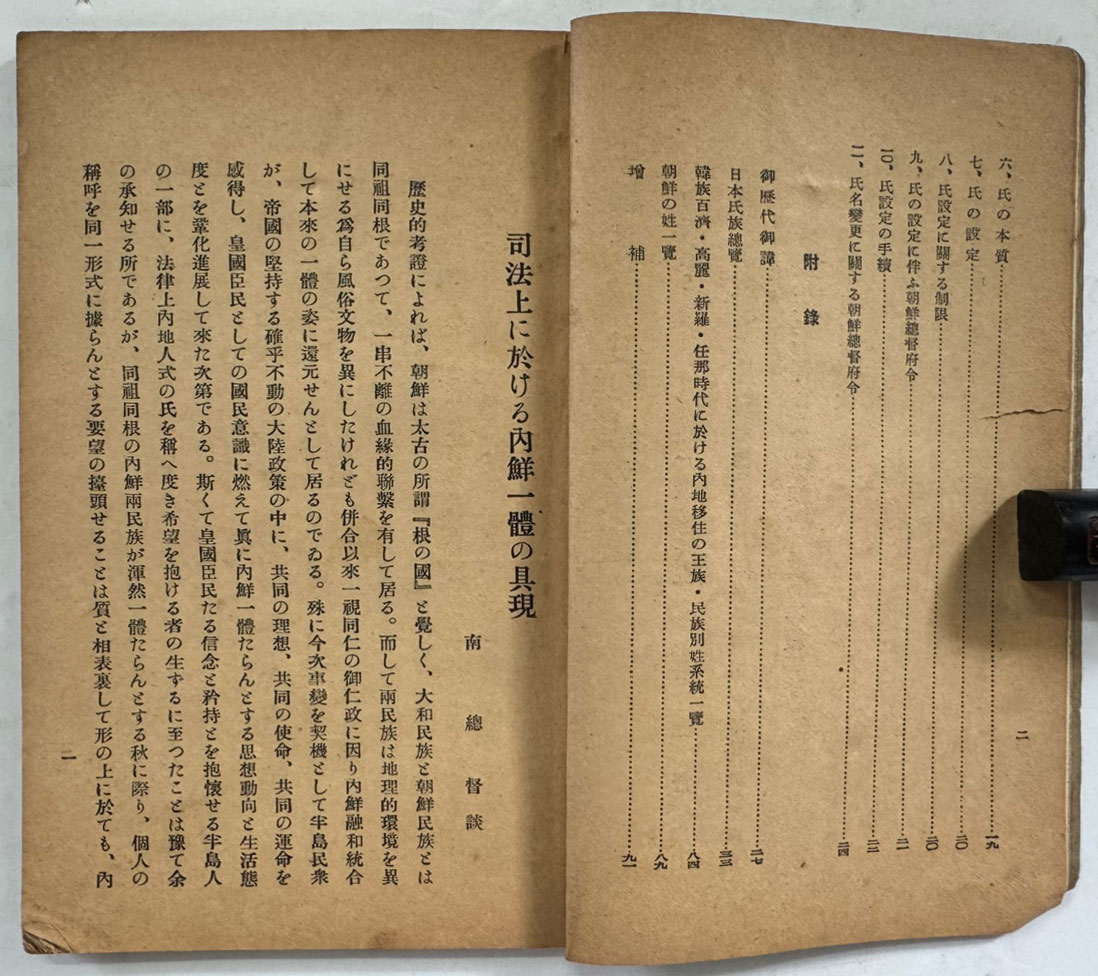 六、氏の本質…………一九
七、氏の設定…………二〇
八、氏設定に關する制限…………二〇
九、氏の設定に伴ふ朝鮮總督府令…………二一
一〇、氏設定の手續…………二二
一一、氏名變更に關する朝鮮總督府令…………二四
附錄
御歷代御諱…………二七
日本氏族總覽…………三三
韓族百濟・高麗・新羅・任那時代に於ける內地移住の王族・民族別姓系統一覽…………八四
朝鮮の姓一覽…………八九
增補…………九一
二
司法上に於ける內鮮一體の具現
南總督談
歷史的考證によれば、朝鮮は太古の所謂『根の國』と覺しく、大和民族と朝鮮民族とは
同祖同根であつて、一串不離の血緣的聯繫を有して居る。而して兩民族は地理的環境を異
にせる爲自ら風俗文物を異にしたけれども併合以來一視同仁の御仁政に因り內鮮融和統合
して本來の一體の姿に還元せんとして居るのでゐる。殊に今次事變を契機として半島民衆
が、帝國の堅持する確乎不動の大陸政策の中に、共同の理想、共同の使命、共同の運命を
感得し、皇國臣民としての國民意識に燃えて眞に內鮮一體たらんとする思想動向と生活態
度とを鞏化進展して來た次第である。斯くて皇國臣民たる信念と矜持とを抱懷せる半島人
の一部に、法律上內地人式の氏を稱へ度き希望を抱ける者の生ずるに至つたことは豫て余
の承知せる所であるが、同祖同根の內鮮兩民族が渾然一體たらんとする秋に際り、個人の
稱呼を同一形式に據らんとする要望の擡頭せることは質と相表裏して形の上に於ても、內
一